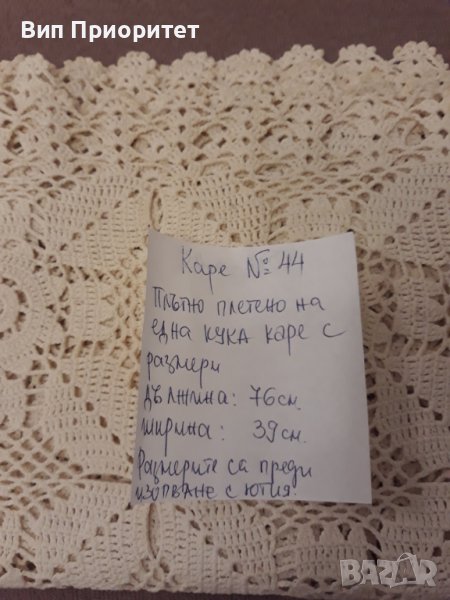 Вип Приоритет
Каре № 44
Плътно плетено на
една кука каре с
размери
Дължина: 76см.
Ширина: 39см.
Размерите са преди
изопване с ютия.
BAZAR